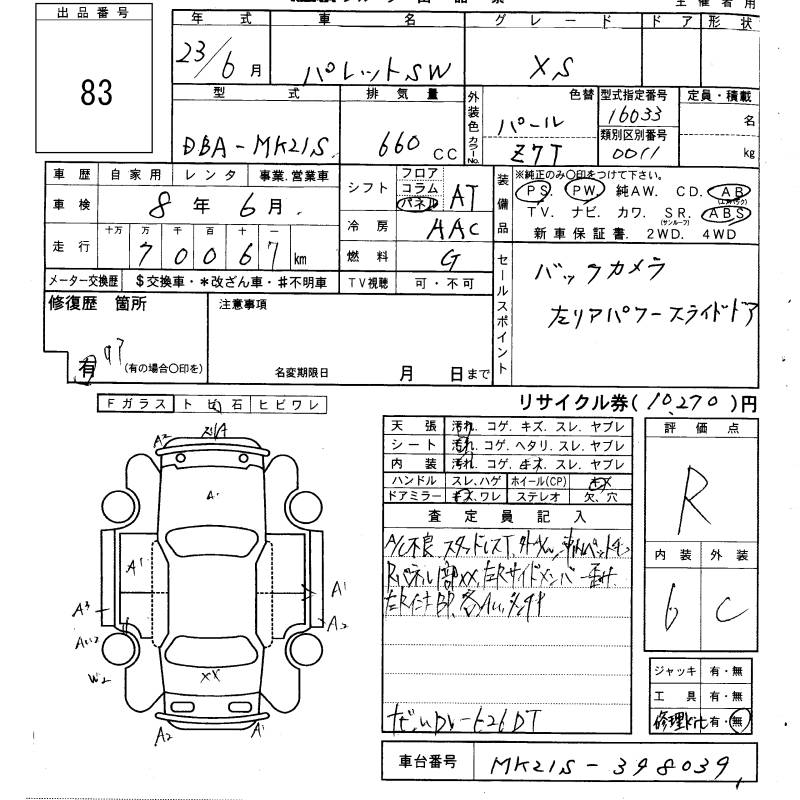 出品番号
83
年式 車名 グレード ドア 形状
23/6月 パレットSW XS
型式 排気量 外装色 カラーNo. 色替 型式指定番号 定員・積載
16033
DBA-MK21S 660 CC パール 類別区別番号 名
Z7T 0011 kg
車歴 自家用 レンタ 事業.営業車
車検 8年6月
十万 万 千 百 十 一
走行 70067 km
メーター交換歴 $交換車・*改ざん車・#不明車
シフト フロア コラム パネル AT
冷房 AAC
燃料 G
TV視聴 可・不可
装備品 ※純正のみ〇印をつけて下さい。
PS. PW. 純AW. CD. AB (エアバック)
TV. ナビ. カワ. SR. (サンルーフ) ABS
新車保証書. 2WD. 4WD
セールスポイント
バックカメラ
左リアパワースライドドア
修復歴 箇所 注意事項
有 (有の場合〇印を)
名変期限日 月 日まで
リサイクル券(10,270)円
Fガラス トビ石 ヒビワレ
天張 汚れ. コゲ. キズ. スレ. ヤブレ
シート 汚れ. コゲ. ヘタリ. スレ. ヤブレ
内装 汚れ. コゲ. キズ. スレ. ヤブレ
ハンドル スレ.ハゲ ホイール(CP) キズ
ドアミラー キズ.ワレ ステレオ 欠.穴
査定員記入
A/C不良 スタッドレスT
評価点
R
内装 外装
6 C
ジャッキ 有・無
工具 有・無
修理kit 有・無
車台番号 MK21S-398039
A2
A1
A1
A1
A3
A2
W2
XX
A2
A1